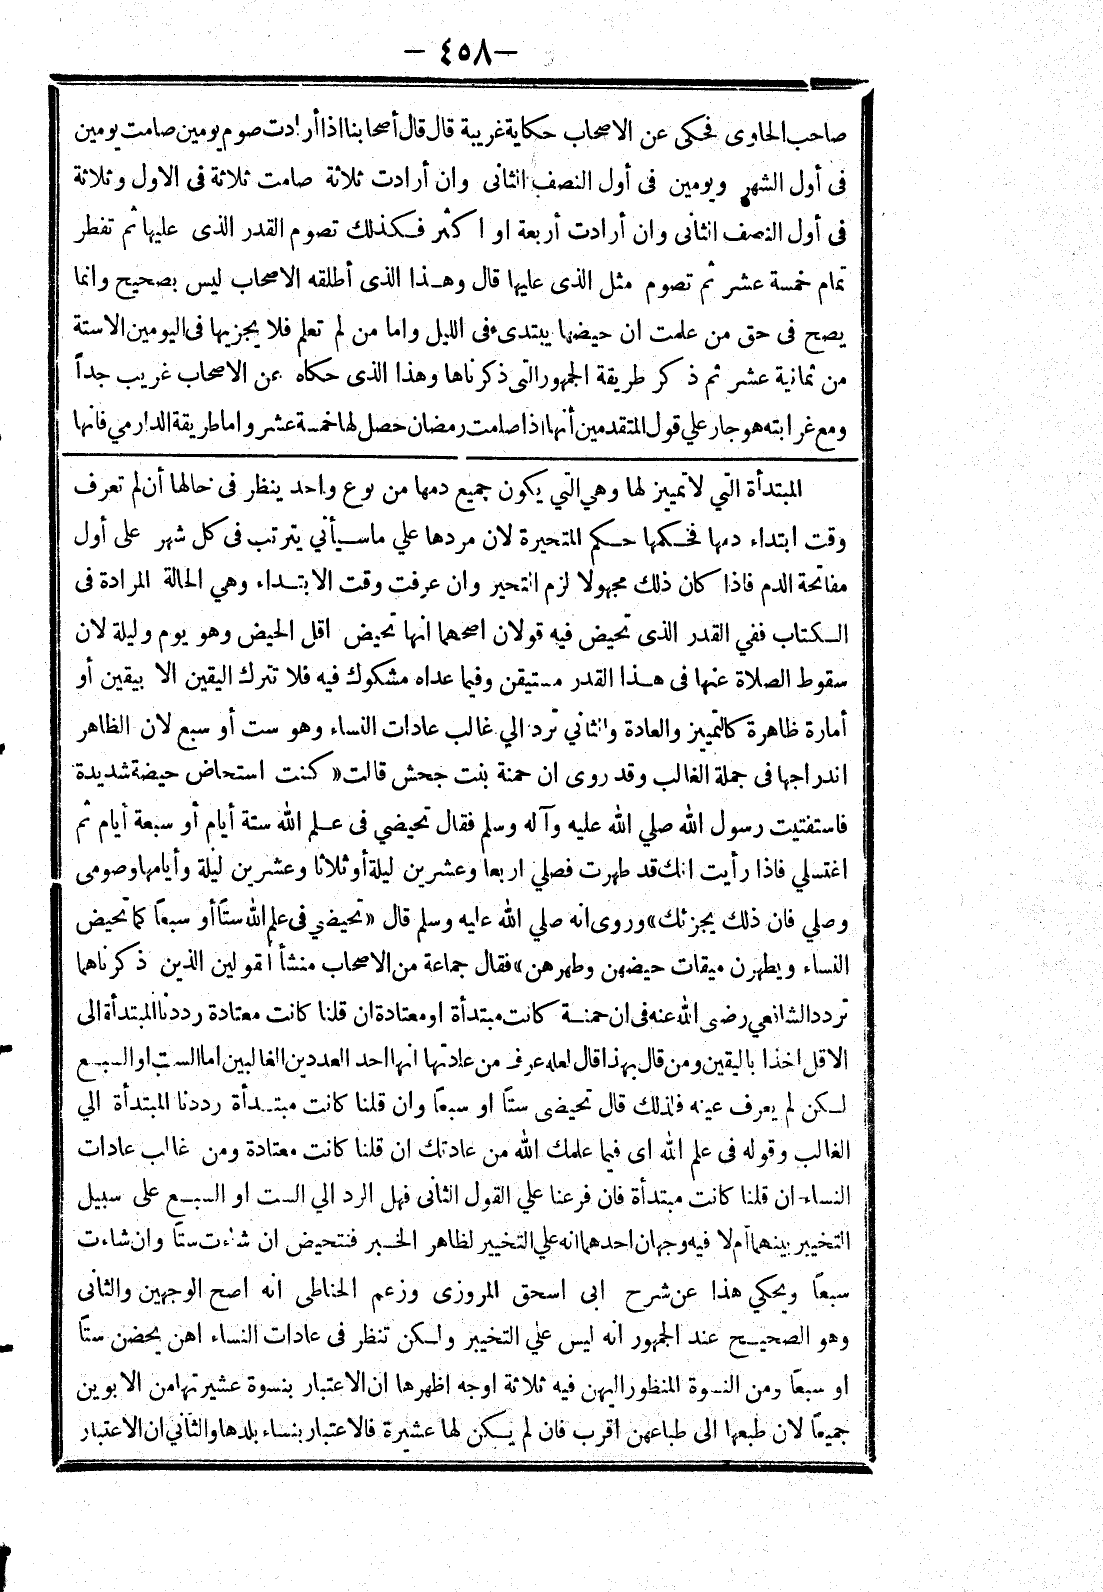 — ٤٥٨ —
صاحب الحاوى فحكى عن الاصحاب حكاية غريبة قال قال أصحابنا اذا أرادت صوم يومين صامت يومين
فى أول الشهر ويومين فى أول النصف الثانى وان أرادت ثلاثة صامت ثلاثة فى الاول وثلاثة
فى أول النصف الثانى وان أرادت أربعة او اكثر فكذلك تصوم القدر الذى عليها ثم تفطر
تمام خمسة عشر ثم تصوم مثل الذى عليها قال وهذا الذى أطلقه الاصحاب ليس بصحيح وانما
يصح فى حق من علمت ان حيضها يبتدىء فى الليل واما من لم تعلم فلا يجزيها فى اليومين الا ستة
من ثمانية عشر ثم ذكر طريقة الجمهور التى ذكرناها وهذا الذى حكاه عن الاصحاب غريب جداً
ومع غرابته هو جار علي قول المتقدمين أنها اذا صامت رمضان حصل لها خمسة عشر واما طريقة الدارمي فانها
المبتدأة التي لا تمييز لها وهي التي يكون جميع دمها من نوع واحد ينظر فى حالها أن لم تعرف
وقت ابتداء دمها فحكمها حكم المتحيرة لان مردها علي ما سيأتي يترتب فى كل شهر على أول
مفاتحة الدم فاذا كان ذلك مجهولا لزم التحير وان عرفت وقت الابتداء وهي الحالة المرادة فى
الكتاب ففي القدر الذى تحيض فيه قولان اصحهما انها تحيض اقل الحيض وهو يوم وليلة لان
سقوط الصلاة عنها فى هذا القدر مستيقن وفيما عداه مشكوك فيه فلا تترك اليقين الا بيقين أو
أمارة ظاهرة كالتمييز والعادة والثاني ترد الي غالب عادات النساء وهو ست أو سبع لان الظاهر
اندراجها فى جملة الغالب وقد روى ان حمنة بنت جحش قالت « كنت استحاض حيضة شديدة
فاستفتيت رسول الله صلي الله عليه وآله وسلم فقال تحيضي فى علم الله ستة أيام أو سبعة أيام ثم
اغتسلي فاذا رأيت انك قد طهرت فصلي اربعا وعشرين ليلة أو ثلاثا وعشرين ليلة وأيامها وصومى
وصلي فان ذلك يجزئك » وروى انه صلي الله عليه وسلم قال « تحيضي فى علم الله ستًا أو سبعًا كما تحيض
النساء ويطهرن ميقات حيضهن وطهرهن » فقال جماعة من الاصحاب منشأ القولين الذين ذكرناهما
تردد الشافعي رضى الله عنه فى ان حمنة كانت مبتدأة او معتادة ان قلنا كانت معتادة رددنا المبتدأة الى
الاقل اخذا باليقين ومن قال بهذا قال لعله عرف من عادتها انها احد العددين الغالبين اما الست او السبع
لكن لم يعرف عينه فلذلك قال تحيضى ستًا او سبعًا وان قلنا كانت مبتدأة رددنا المبتدأة الي
الغالب وقوله فى علم الله اى فيما علمك الله من عادتك ان قلنا كانت معتادة ومن غالب عادات
النساء ان قلنا كانت مبتدأة فان فرعنا علي القول الثانى فهل الرد الي الست او السبع على سبيل
التخيير بينهما أم لا فيه وجهان احدهما انه علي التخيير لظاهر الخبر فتتحيض ان شاءت ستًا وان شاءت
سبعًا ويحكي هذا عن شرح ابى اسحق المروزى وزعم الحناطى انه اصح الوجهين والثانى
وهو الصحيح عند الجمهور انه ليس علي التخيير ولكن تنظر فى عادات النساء اهن يحضن ستًا
او سبعًا ومن النسوة المنظور اليهن فيه ثلاثة اوجه اظهرها ان الاعتبار بنسوة عشيرتها من الابوين
جميعًا لان طبعها الى طباعهن اقرب فان لم يكن لها عشيرة فالاعتبار بنساء بلدها والثاني ان الاعتبار